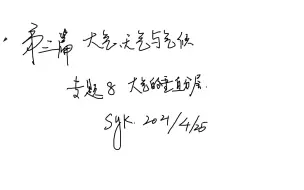 第三篇 大气、天气与气候
专题8 大气的垂直分层.
syk. 2021/4/25